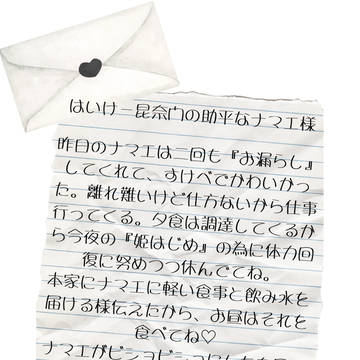 はいけー昆奈門の助平なナマエ様
昨日のナマエは二回も『お漏らし』
してくれて、すけべでかわいかっ
た。離れ難いけど仕方ないから仕事
行ってくる。夕食は調達してくるか
ら今夜の『姫はじめ』の為に体力回
復に努めつつ休んでてね。
本家にナマエに軽い食事と飲み水を
届ける様伝えたから、お昼はそれを
食べてね♡